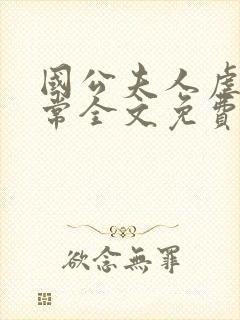 國公夫人虐
常全文免費
欲念無罪